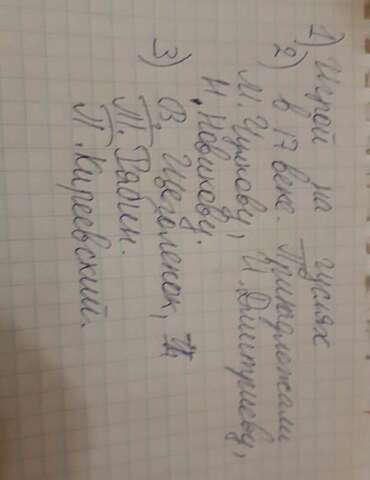 1) Игрой на гуслях
2) в 17 веке. Принадлежали
М. Чулкову, И. Дмитриеву,
Н. Новикову.
3) В. Щеголенок,
Т. Рябин.
П. Киреевский.